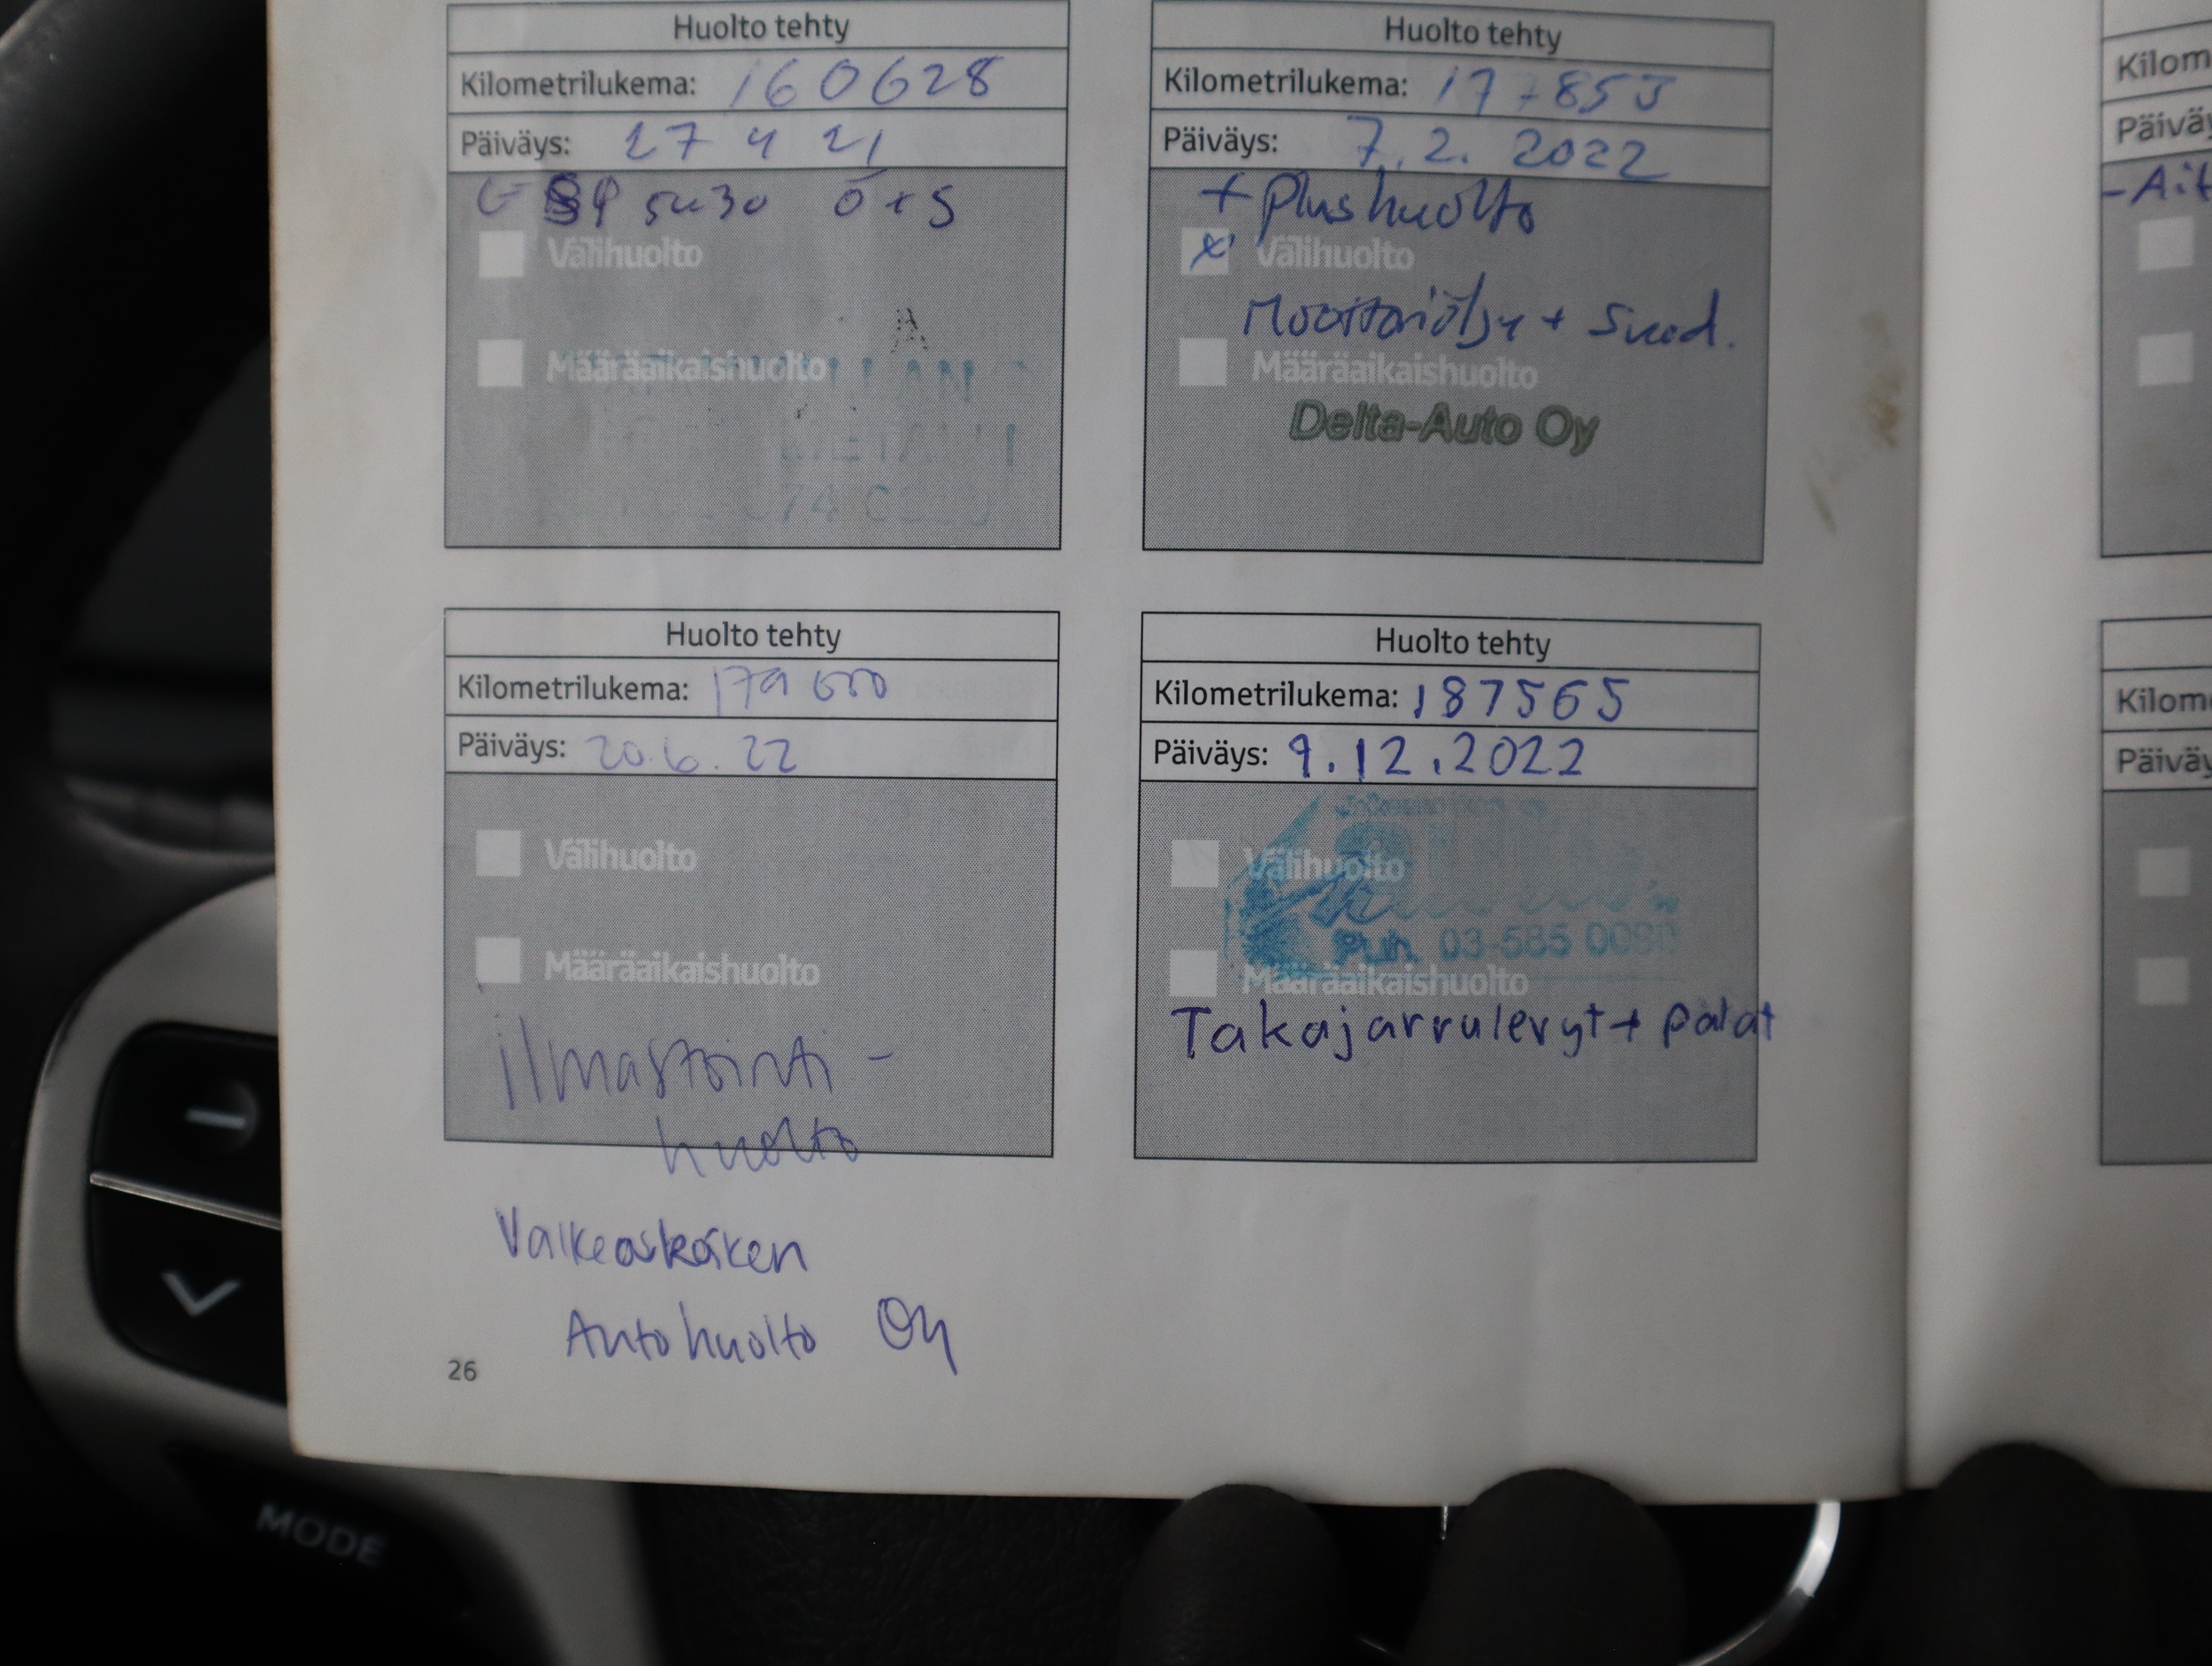 Huolto tehty
Kilometrilukema: 160628
Päiväys: 27 4 21
5w30 Ö+S
Välihuolto
Määräaikaishuolto
Huolto tehty
Kilometrilukema:
Päiväys: 7.2.2022
+ Plushuolto
x Välihuolto
Moottoriöljy + suod.
Määräaikaishuolto
Delta-Auto Oy
Huolto tehty
Kilometrilukema:
Päiväys: 20.6.22
Välihuolto
Määräaikaishuolto
ilmastointi-
huolto
Valkeakosken
Autohuolto Oy
Huolto tehty
Kilometrilukema: 187565
Päiväys: 9.12.2022
Välihuolto
Puh. 03-585
Määräaikaishuolto
Takajarrulevyt + palat
26
Kilom
Päiväy
-Ait
Kilom
Päiväy
MODE